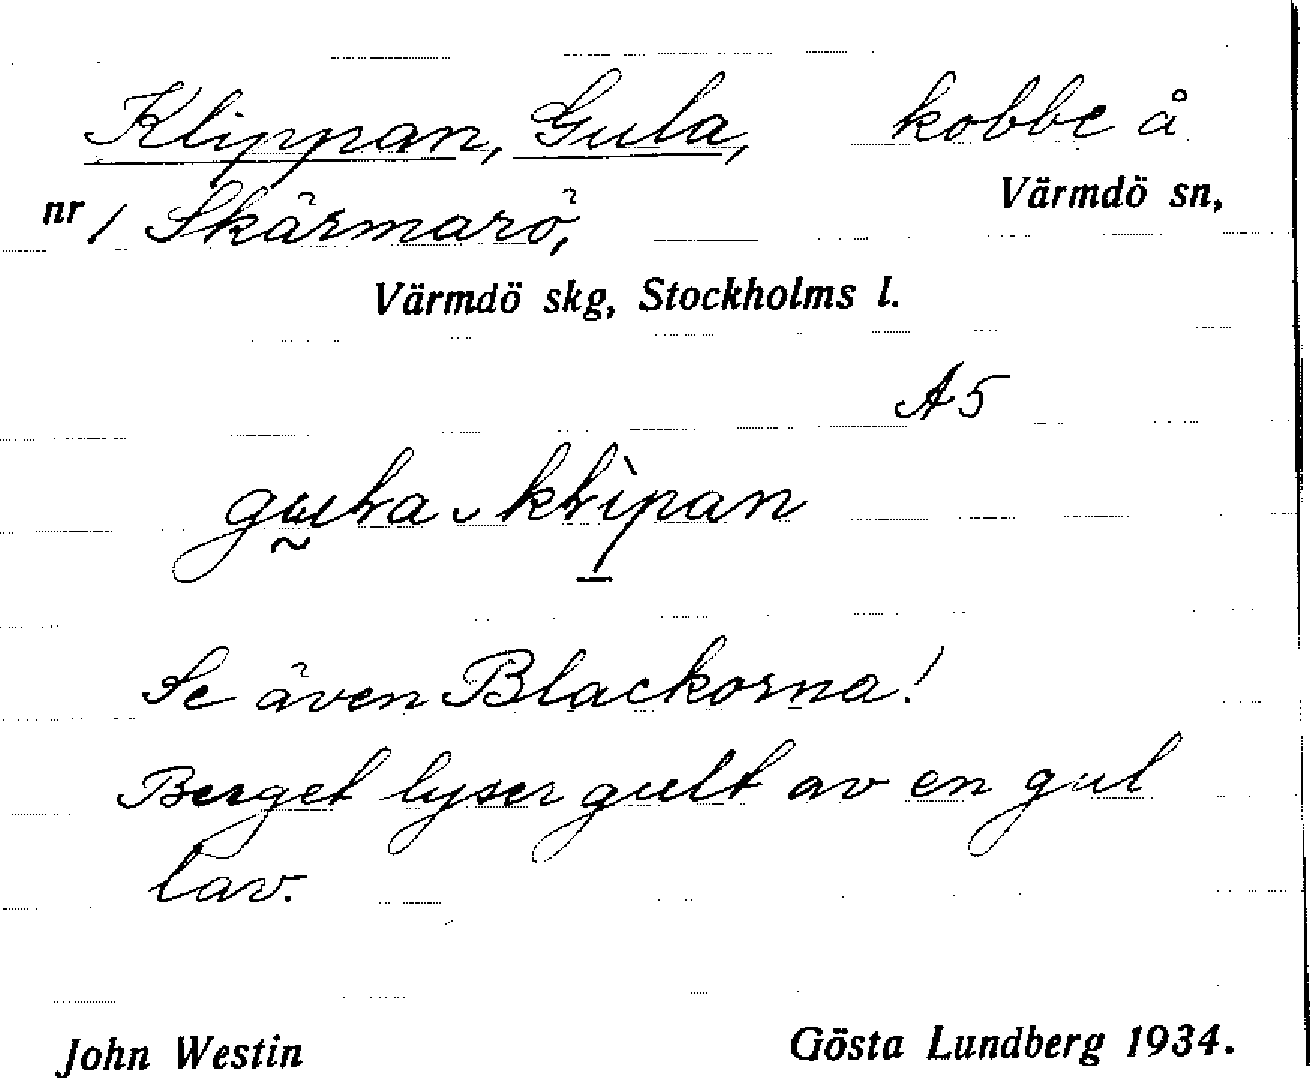 Klippan, Gula, kobbe å
nr 1 Skärmarö, Värmdö sn,
Värmdö skg, Stockholms l.
A5
Se även Blackorna!
Berget lyser gult av en gul
lav.
John Westin Gösta Lundberg 1934.